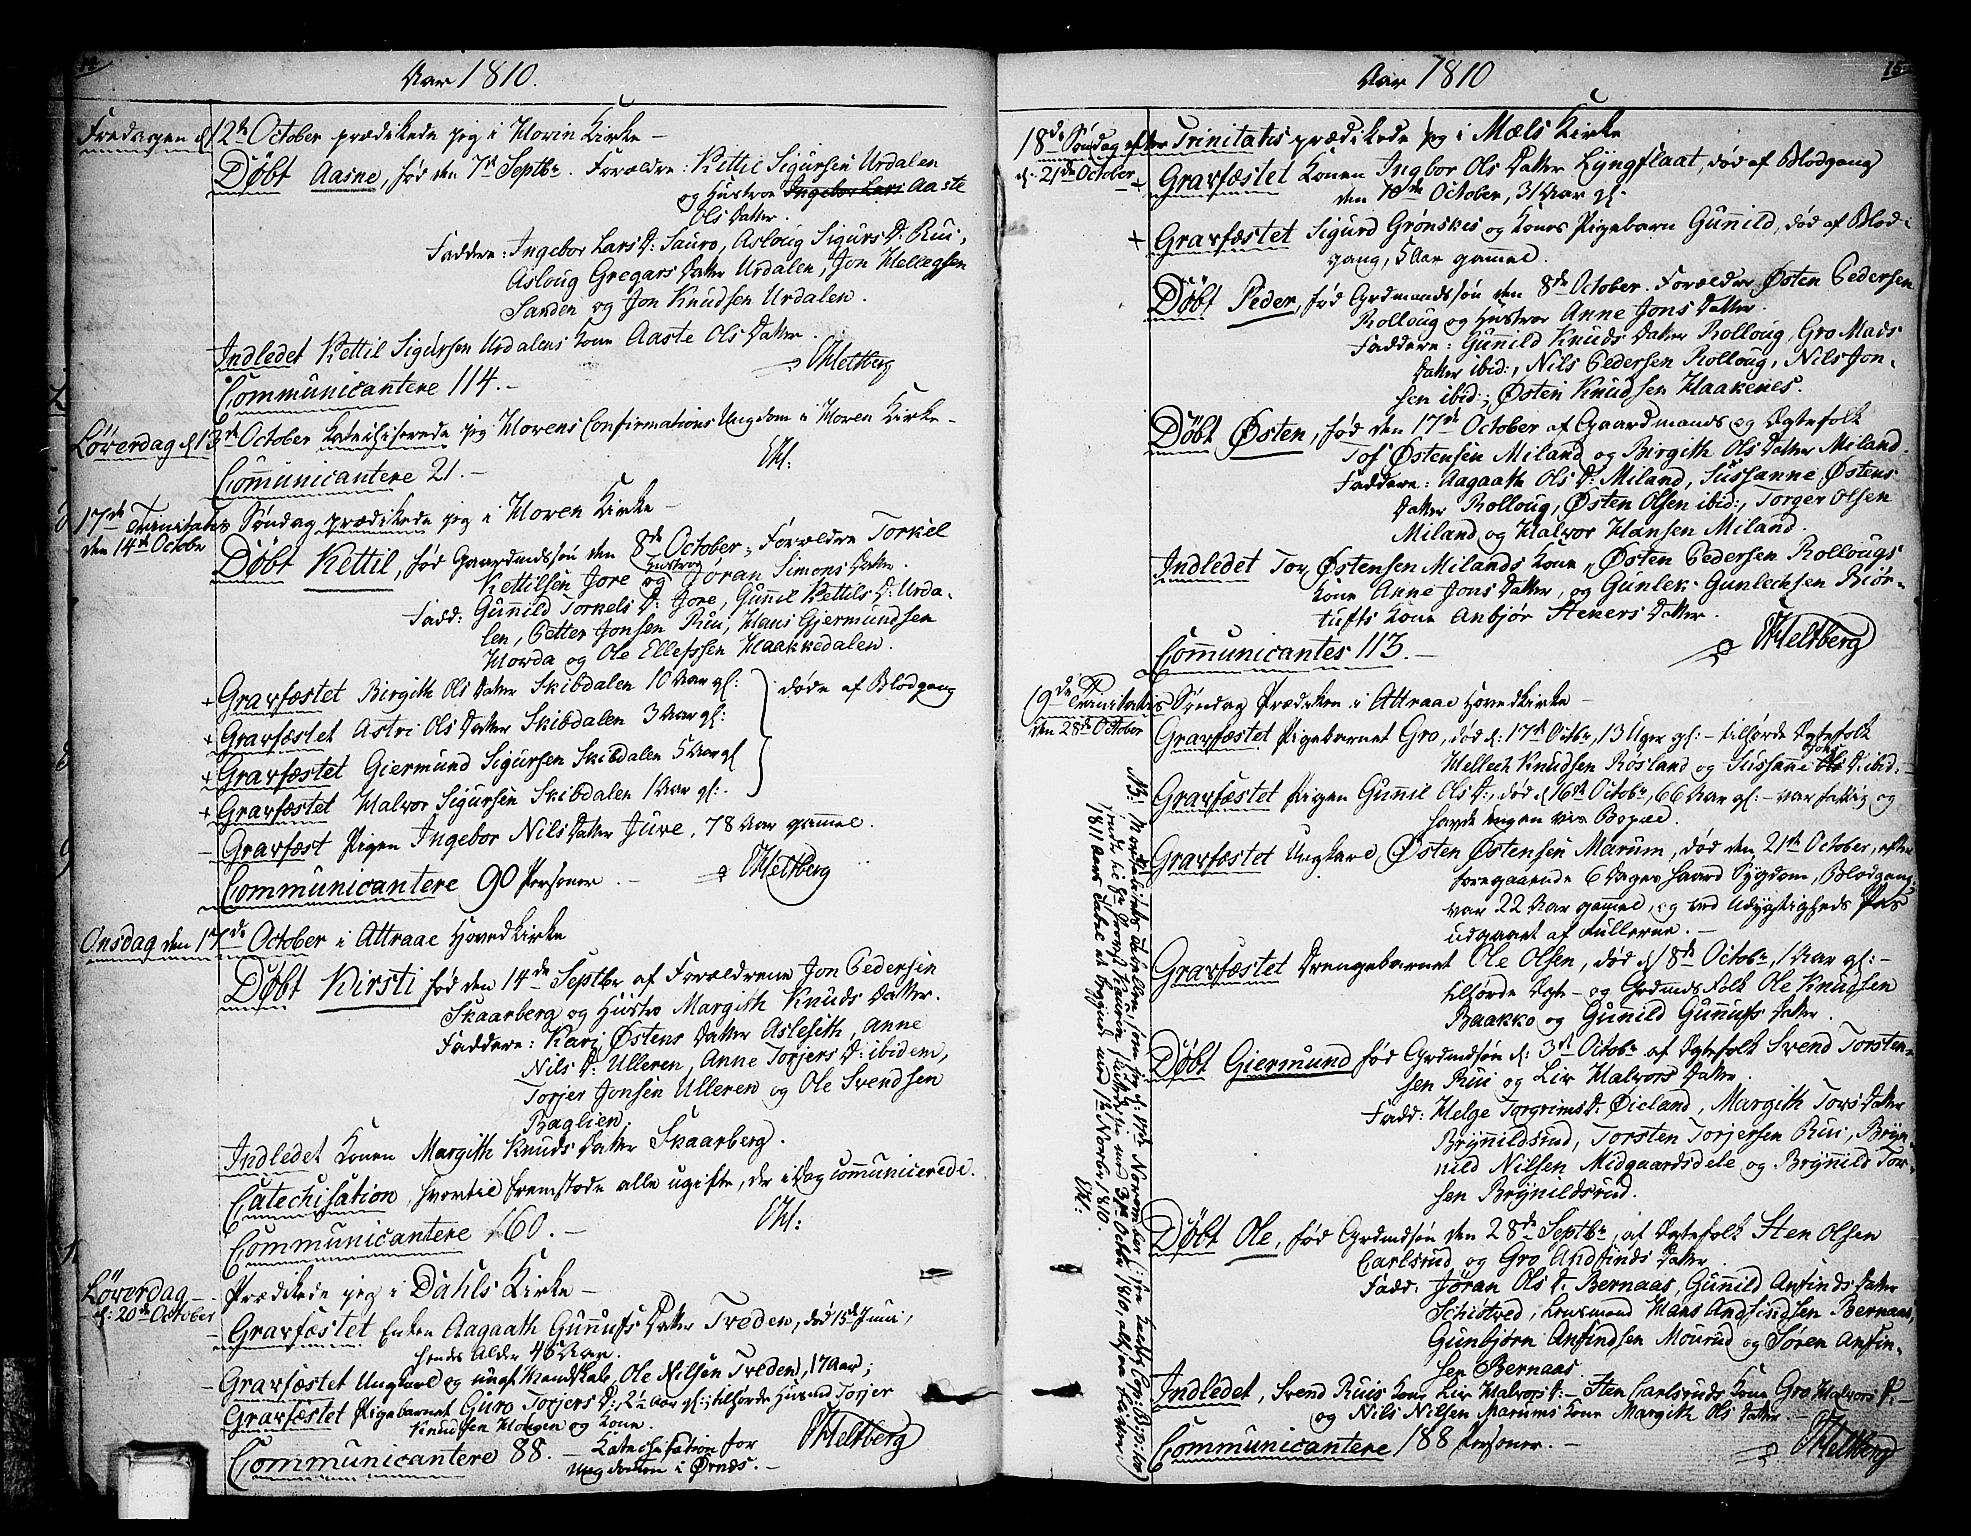 14
Aar 1810.
Fredagen d 12te October prædikede jeg i Hovin Kirke –
Døbt Aasne, fød den 7de Septbr. Forældre: Kettil Sigursen Urdalen
og Hustroe Ingebor Lars Aaste
Ols Datter.
Faddere: Ingebor Lars D: Sauro, Asloug Sigurs D: Rui,
Asloug Gregars Datter Urdalen, Jon Helvegsen
Sanden og Jon Knudsen Urdalen.
Indledet Kettil Sigursen Urdalens Kone Aaste Ols Datter.
Heltberg
Communicantere 114. –
Løverdag d 13de October katechiserede jeg Hovens Confirmations Ungdom i Hoven Kirke –
Communicantere 21. –
17de Trinitatis Søndag prædikede jeg i Hoven Kirke –
den 14de Octobr
Døbt Kettil, fød Gaardmdssøn den 8de October, Forældre Torkel
Kettilsen Jore og Hustroe Jøran Simons Datter.
Fadd: Gunnild Torkels D: Jore, Gunnil Kettils D: Urda-
len, Petter Jonsen Rui, Hans Gjermundsen
Hovda og Ole Ellefssen Haakkedalen.
+ Gravfæstet Birgith Ols Datter Skibdalen 10 Aar gl:
døde af Blodgang
+ Gravfæstet Astri Ols Datter Skibdalen 3 Aar gl:
+ Gravfæstet Giermund Sigursen Skibdalen 5 Aar gl
+ Gravfæstet Halvor Sigursen Skibdalen 1 Aar gl:.
– Gravfæst Pigen Ingebor Nils Datter Juve, 78 Aar gammel.
Communicantere 90 Personer. –
Heltberg
Onsdag den 17de October i Attraae Hovedkirke
Døbt Kirsti fød den 14de Septbr af Forældrene Jon Pedersen
Skaarberg og Hustro Margith Knuds Datter.
Faddere: Kari Østens Datter Aslesith, Anne
Nils D: Ulleren, Anne Torjers D: ibidem,
Torjer Jonsen Ulleren og Ole Svendsen
Baglien.
Indledet Konen Margith Knuds Datter Skaarberg.
Catechisation, hvortil fremstode alle ugifte, der i Dag communicerede.
Communicantere 60. –
Løverdag – Prædikede jeg i Dahls Kirke –
d: 20de October
– Gravfæstet Enken Aagaath Gunnufs Datter Treden, død 15de Juni,
hendes Alder 46 Aar.
– Gravfæstet Ungkarl og ungt Mandskab, Ole Nilsen Treden, 17 Aar;
– Gravfæstet Pigebarnet Guro Torjers D:, 2½ Aar gl:; tilhørde Husmd Torjer
Knudsen Haugen og Kone.
Communicantere 88. – Katechesation for
Ungdommen i Ørnæs. –
Heltberg
15
Aar 1810
18de Søndag efter Trinitatis prædikede jeg i Mæls Kirke
d. 21de October
+ Gravfæstet Konen Ingbor Ols Datter Lyngflaat, død af Blodgang
den 10de October, 31 Aar gl.
+ Gravfæstet Sigurd Grønskes og Kones Pigebarn Gunild, død af Blod-
gang, 5 Aar gammel.
Døbt Peder, fød Grdmandssøn den 8de October. Forældre Østen Pedersen
Rolloug og Hustroe Anne Jons Datter.
Faddere: Gunild Knuds Datter Rolloug, Gro Mads
Datter ibid:, Nils Pedersen Rolloug, Nils Jon-
sen ibid:, Østen Knudsen Haakenes.
Døbt Østen, fød den 17de October af Gaardmands og Ægtefolk
Tof Østensen Miland og Birgith Ols Datter Miland.
Faddere: Aagaath Ols D: Miland, Sussanne Østens
Datter Rolloug, Østen Olsen ibid:, Torger Olsen
Miland og Halvor Hansen Miland.
Indledet Tov Østensen Milands Kone, Østen Pedersen Rollougs
Kone Anne Jons Datter, og Gunlek Gunlechsen Biør-
tufts Kone Anbjør Steners Datter.
Communicantes 113. –
Heltberg
19de Trinitatis Søndag Prædiken i Attraae Hovedkirke –
den 28de October
Gravfæstet Pigebarnet Gro, død d: 17de Octbr, 13 Uger gl: – tilhørde Ægtefolk
Hellech Knudsen Rosland og Sussanne D: ibid: –
Gravfæstet Pigen Gunnil Ols D:, død d 16de Octobr, 66 Aar gl: – var fattig og
havde ingen vis Bopæl.
Gravfæstet Ungkarl Østen Østensen Marum, død den 21de October, efter
foregaaende 6 Dages haard Sygdom, Blodgang,
var 22 Aar gammel, og ved Udygtigheds Pas
udgaaet af Rullerne. –
Gravfæstet Drengebarnet Ole Olsen, død d 18de Octobr, 1 Aar gl: –
tilhørde Ægte- og Grdmds Folk Ole Knudsen
Baakko og Gunild Gunnufs Datter.
Døbt Giermund fød Grdmdsøn d: 3de Octobr af Ægtefolk Svend Torsten-
sen Rui og Liv Halvors Datter.
Fadd: Helge Torgrims D: Øieland, Margith Tors Datter
Brynnildsrud, Torsten Torjersen Rui, Bryn-
nild Nilsen Midgaardsdele og Brynnild Tor-
sen Brynildsrud.
Døbt Ole, fød Grdmdsøn den 28de Septbr, af Ægtefolk Sten Olsen
Carlsrud og Gro Andfinds Datter.
Fadd: Jøran Ols D: Bernaas, Gunnild Anfinds Datter
Schistved, Lensmand Hans Andfindsen Bernaas,
Gunbjørn Anfindsen Mourud og Søren Anfin-
sen Bernaas.
Indledet, Svend Ruis Kone Liv Halvors D: – Sten Carlsruds Kone Gro Halvors D: –
og Nils Nilsen Marums Kone Margith Ols Datter. –
Communicantere 188 Personer. –
Heltberg